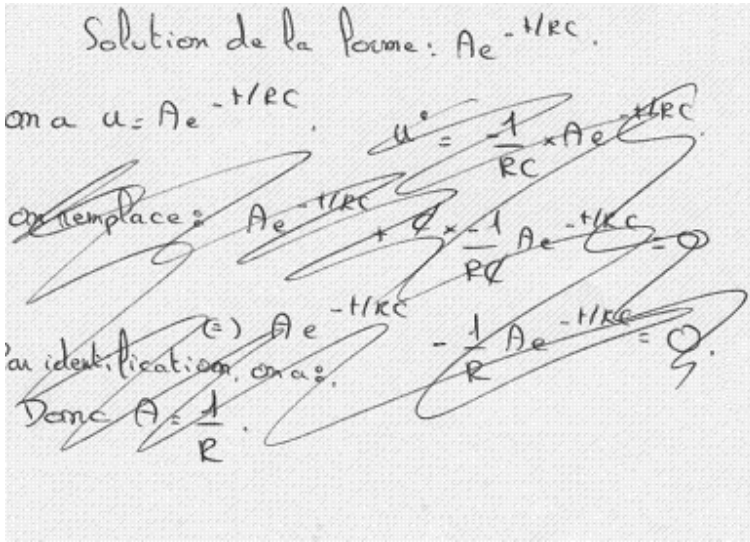 Solution de la forme : Ae^{-t/RC}.
on a u = Ae^{-t/RC}. u° = -1/RC × Ae^{-t/RC}.
on remplace : Ae^{-t/RC} + C × -1/RC Ae^{-t/RC} = 0
(=) Ae^{-t/RC} - 1/R Ae^{-t/RC} = 0.
Par identification, on a :
Donc A = 1/R.